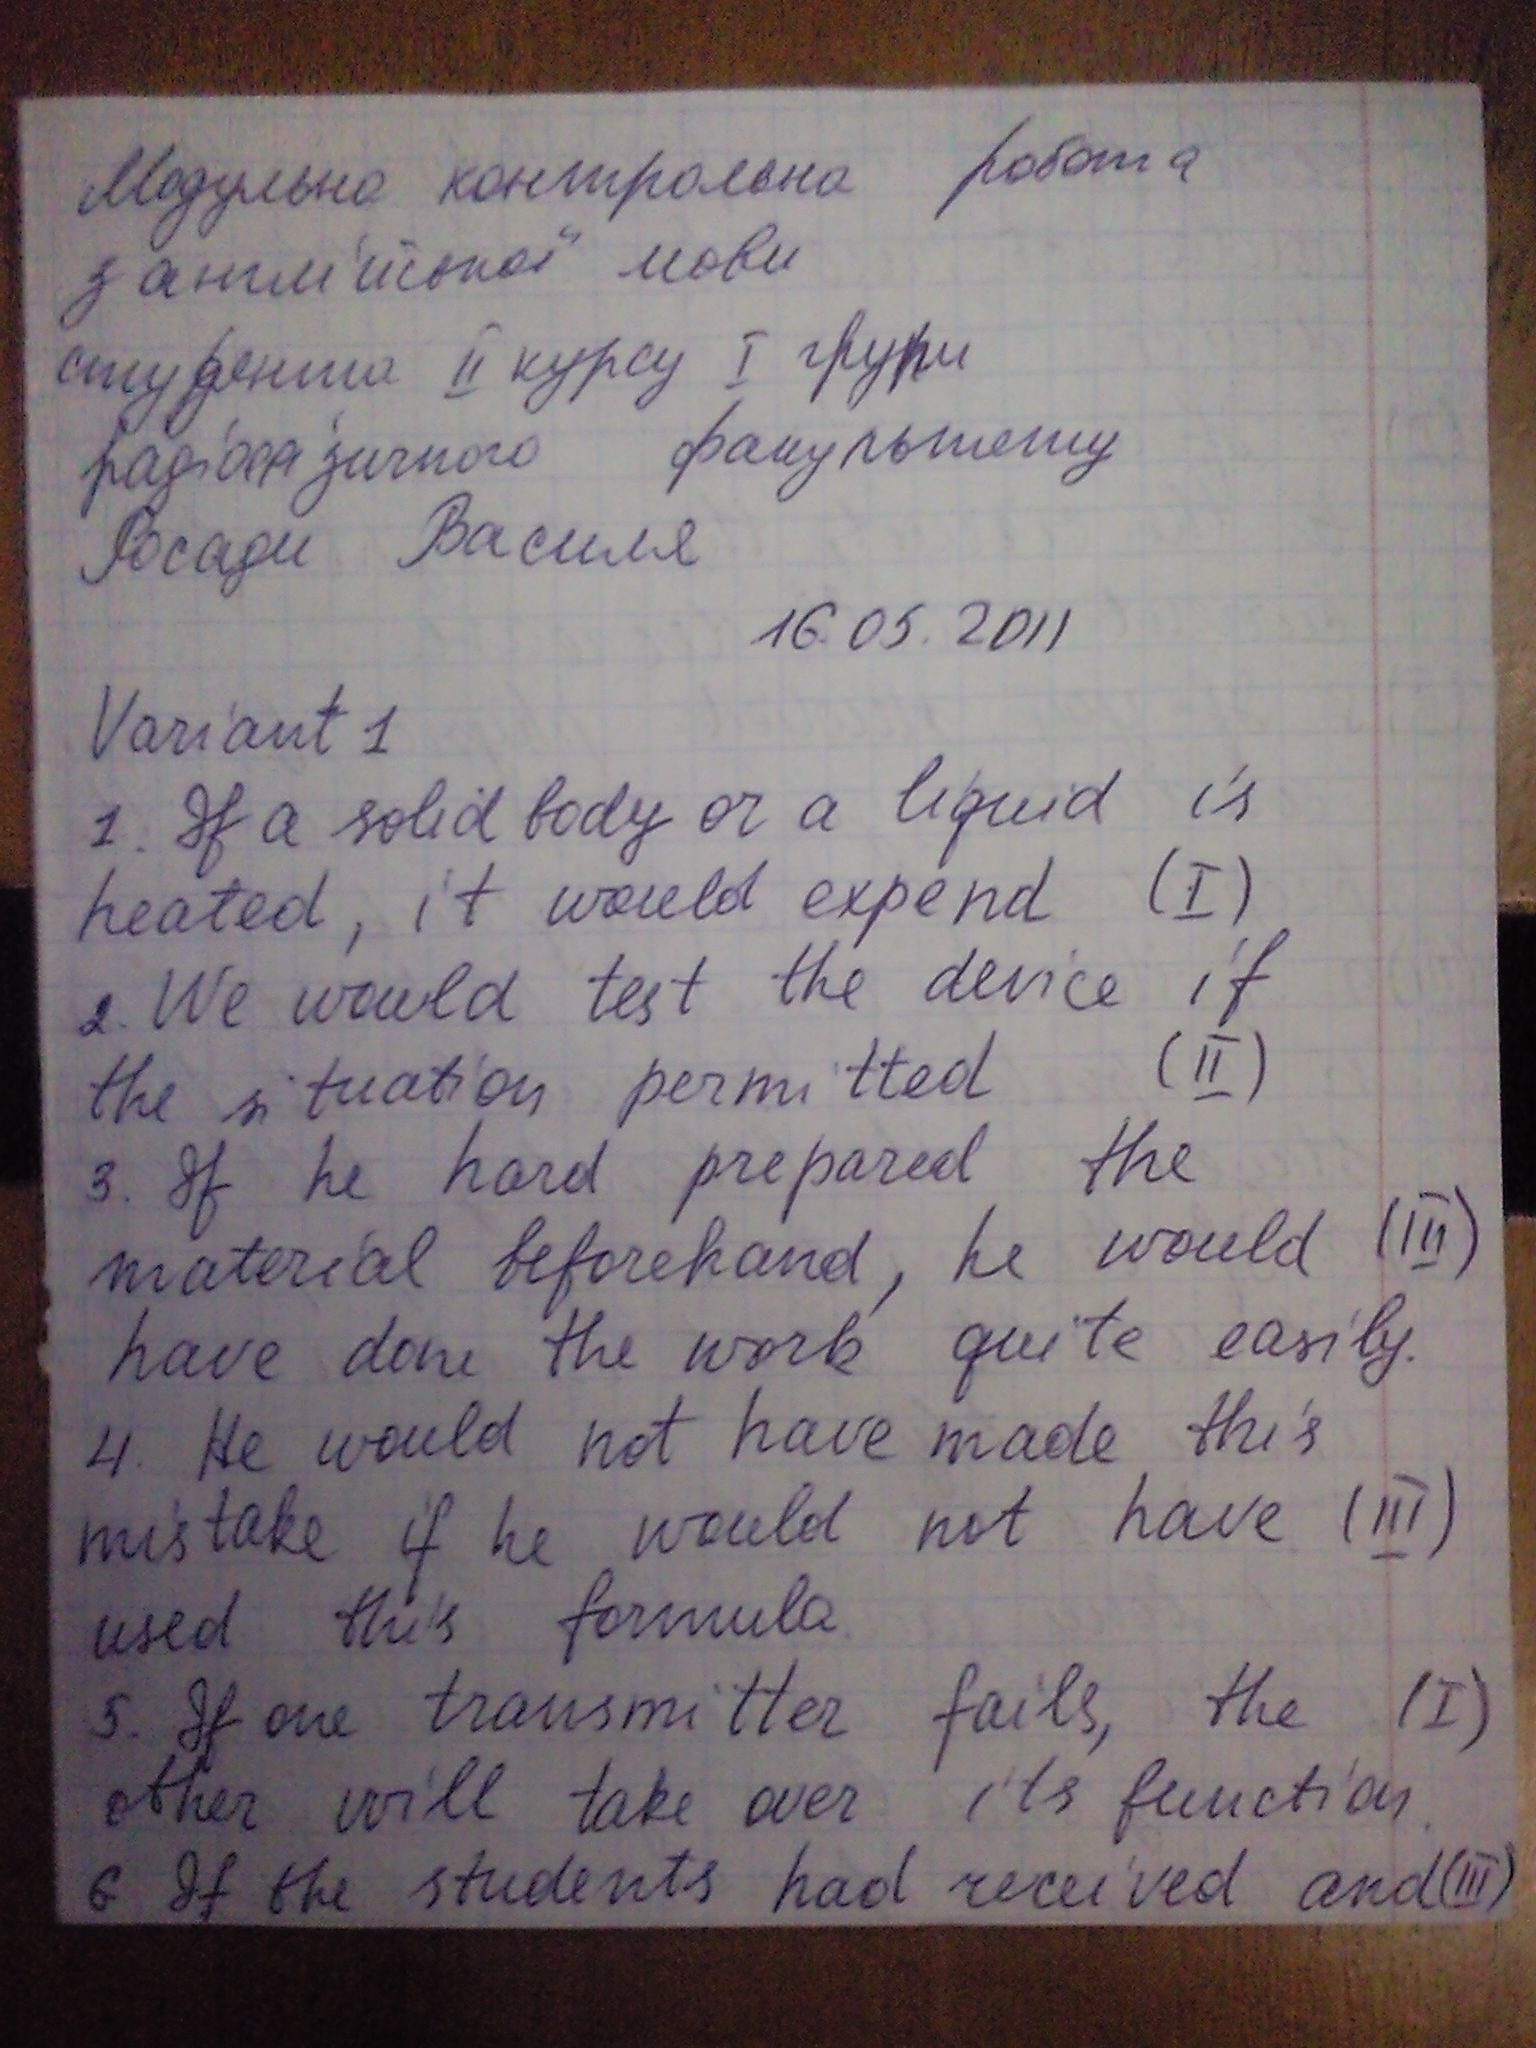 Модульна контрольна робота
з англійської мови
студента II курсу I групи
радіофізичного факультету
Росади Василя
16.05.2011
Variant 1
1. If a solid body or a liquid is
heated, it would expend (I)
2. We would test the device if
the situation permitted (II)
3. If he hard prepared the
material beforehand, he would (III)
have done the work quite easily.
4. He would not have made this
mistake if he would not have (III)
used this formula
5. If one transmitter fails, the (I)
other will take over its function.
6 If the students had received and (III)